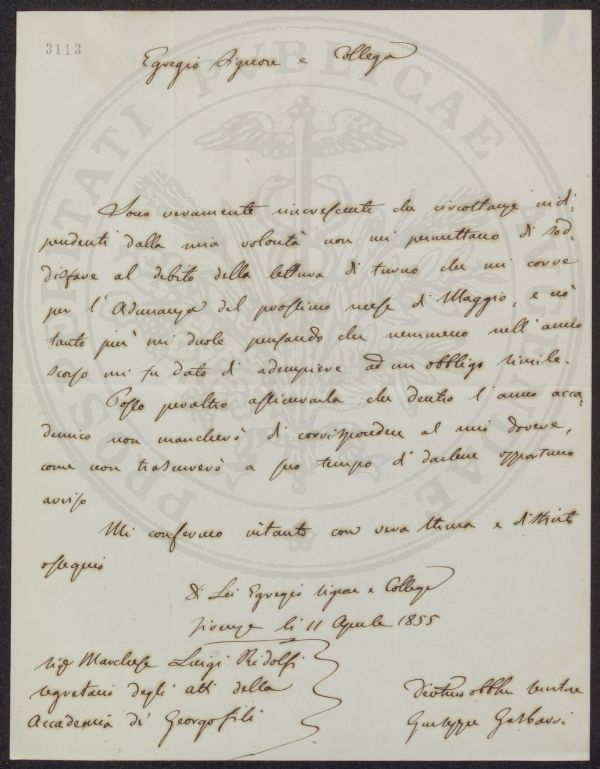 3113
Egregio Signore e Collega
Sono veramente rincrescente che circostanze indi-
pendenti dalla mia volontà non mi permettano di sod-
disfare al debito della lettura di turno che mi corre
per l'Adunanza del prossimo mese di Maggio, e ciò
tanto più mi duole pensando che nemmeno nell'anno
scorso mi fu dato di adempiere ad un obbligo simile.
Posso peraltro assicurarla che dentro l'anno acca-
demico non mancherò di corrispondere al mio dovere,
come non trascurerò a suo tempo di darlene opportuno
avviso
Mi confermo intanto con vera stima e distinto
ossequio
Di Lei Egregio Signore e Collega
Firenze li 11 Aprile 1855
Sig Marchese Luigi Ridolfi
segretario degli atti della
Accademia de' Georgofili
Devmo obbmo servitore
Giuseppe
PROSPERITATI PUBLICAE AUGENDAE